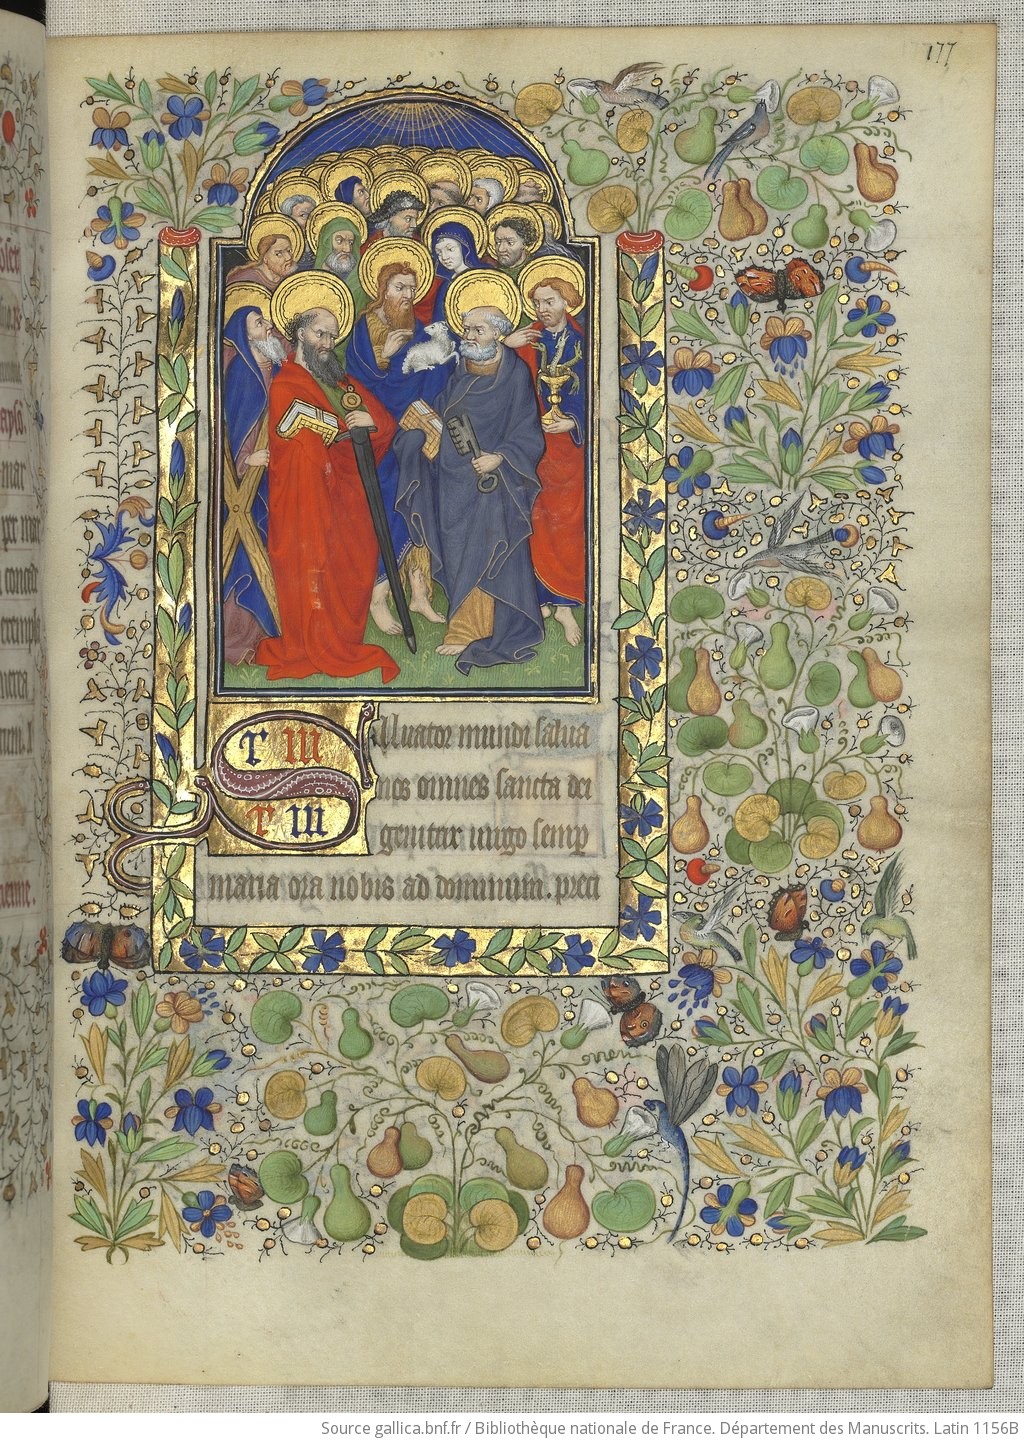 177
Saluator mundi salua
nos omnes sancta dei
genitrix uirgo semp
maria ora nobis ad dominum. preci
Source gallica.bnf.fr / Bibliothèque nationale de France. Département des Manuscrits. Latin 1156B